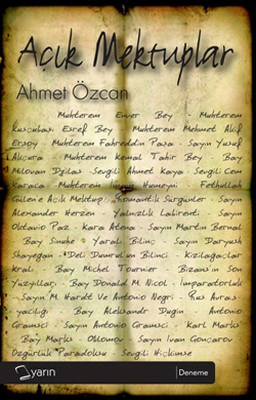 Açık Mektuplar
Ahmet Özcan
Muhterem Enver Bey - Muhterem
Kuşçubaşı Eşref Bey - Muhterem Mehmet Akif
Ersoy - Muhterem Fahreddin Paşa - Sayın Yusuf
Akçura - Muhterem Kemal Tahir Bey - Bay
Milovan Djilas - Sevgili Ahmet Kaya - Sevgili Cem
Karaca - Muhterem İmam Humeyni - Fethullah
Gülen'e Açık Mektup - Romantik Sürgünler - Sayın
Alexander Herzen - Yalnızlık Labirenti - Sayın
Oktavio Paz - Kara Atena - Sayın Martin Bernal
- Bay Sinuhe - Yaralı Bilinç - Sayın Daryush
Shayegan - Deli Dumrul'un Bilinci - Kızılağaçlar
Kralı - Bay Michel Tournier - Bizans'ın Son
Yüzyılları - Bay Donald M. Nicol - İmparatorluk
- Sayın M. Hardt Ve Antonio Negri - Rus Avras-
yacılığı - Bay Aleksandr Dugin - Antonio
Gramsci - Sayın Antonio Gramsci - Karl Marks
- Bay Marks - Oblomov - Sayın İvan Gonçarov -
Özgürlük Paradoksu - Sevgili Hiçkimse
yarın
Deneme